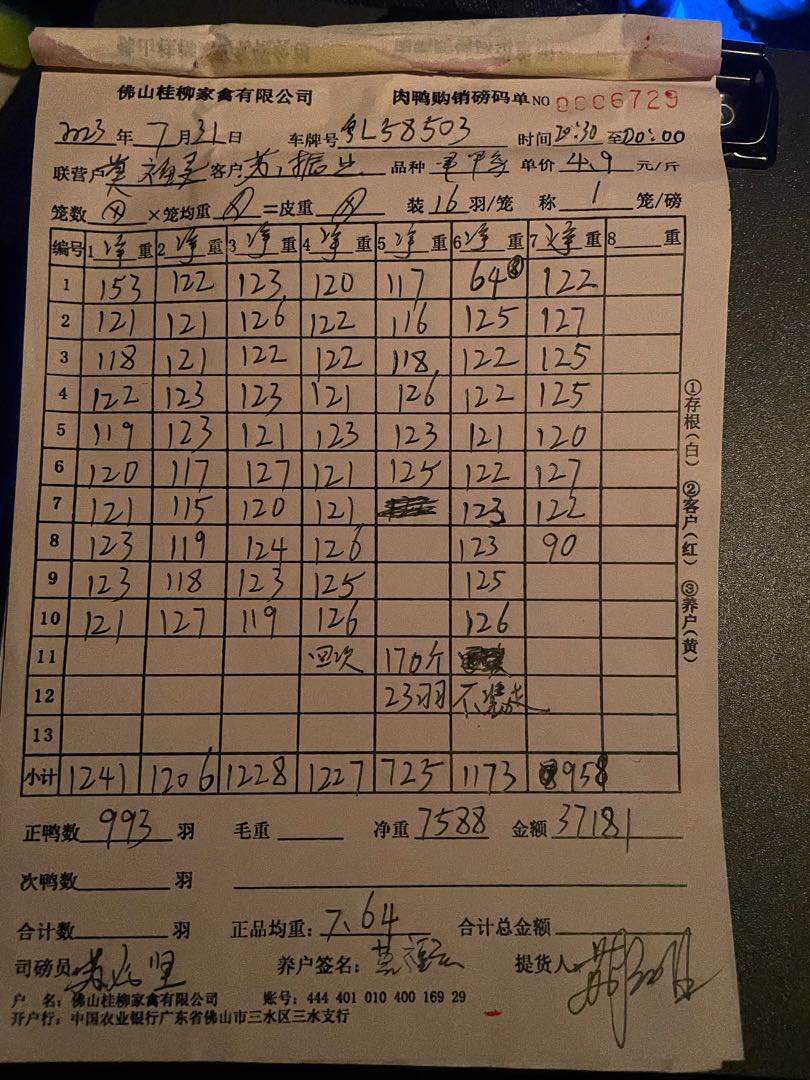 佛山桂柳家禽有限公司 肉鸭购销磅码单 NO 0006729
2023年 7月31日 车牌号 粤L58503 时间 20:30 至 00:00
联营户 客户 品种 单价 4.9 元/斤
笼数 × 笼均重 = 皮重 装 16 羽/笼 称 1 笼/磅
编号 1 净 重 2 净 重 3 净 重 4 净 重 5 净 重 6 净 重 7 净 重 8 重
1 153 122 123 120 117 64⑧ 122
2 121 121 126 122 116 125 127
3 118 121 122 122 118 122 125
4 122 123 123 121 126 122 125
5 119 123 121 123 123 121 120
6 120 117 127 121 125 122 127
7 121 115 120 121 123 122
8 123 119 124 126 123 90
9 123 118 123 125 125
10 121 127 119 126 126
11 170斤
12 23羽 不
13
小计 1241 1206 1228 1227 725 1173 958
正鸭数 993 羽 毛重 净重 7588 金额 37181
次鸭数 羽
合计数 羽 正品均重: 7.64 合计总金额
司磅员 养户签名: 提货人
户 名: 佛山桂柳家禽有限公司 账号: 444 401 010 400 169 29
开户行: 中国农业银行广东省佛山市三水区三水支行
①存根(白) ②客户(红) ③养户(黄)